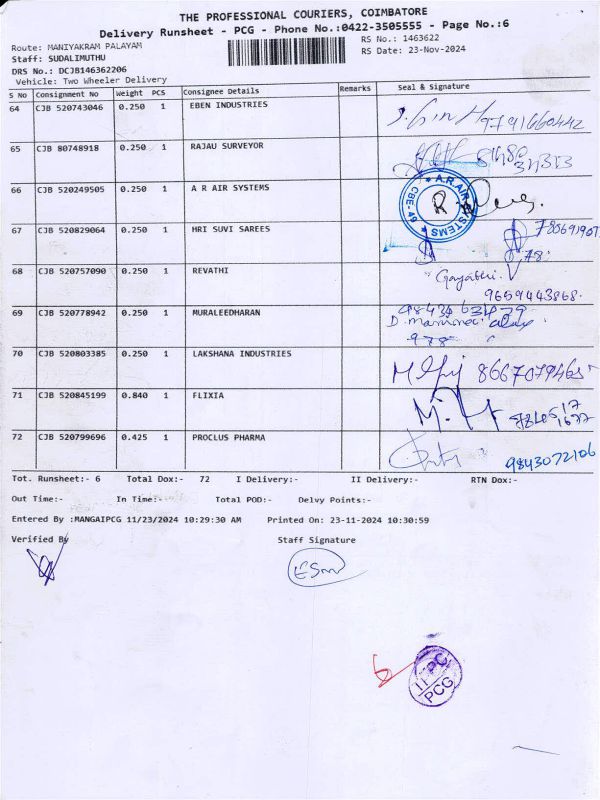 THE PROFESSIONAL COURIERS, COIMBATORE
Delivery Runsheet - PCG - Phone No.:0422-3505555 - Page No.:6
Route: MANIYAKRAM PALAYAM RS No.: 1463622
Staff: SUDALIMUTHU RS Date: 23-Nov-2024
DRS No.: DCJB146362206
Vehicle: Two Wheeler Delivery
S No Consignment No Weight PCS Consignee Details Remarks Seal & Signature
64 CJB 520743046 0.250 1 EBEN INDUSTRIES 9791660442
65 CJB 80748918 0.250 1 RAJAU SURVEYOR
66 CJB 520249505 0.250 1 A R AIR SYSTEMS A.R.AIR SYSTEMS CBE-49
67 CJB 520829064 0.250 1 HRI SUVI SAREES
68 CJB 520757090 0.250 1 REVATHI Gayathri. V
9659443868.
69 CJB 520778942 0.250 1 MURALEEDHARAN
70 CJB 520803385 0.250 1 LAKSHANA INDUSTRIES
71 CJB 520845199 0.840 1 FLIXIA
72 CJB 520799696 0.425 1 PROCLUS PHARMA 9843072106
Tot. Runsheet:- 6 Total Dox:- 72 I Delivery:- II Delivery:- RTN Dox:-
Out Time:- In Time:- Total POD:- Delvy Points:-
Entered By :MANGAIPCG 11/23/2024 10:29:30 AM Printed On: 23-11-2024 10:30:59
Verified By Staff Signature
PCG